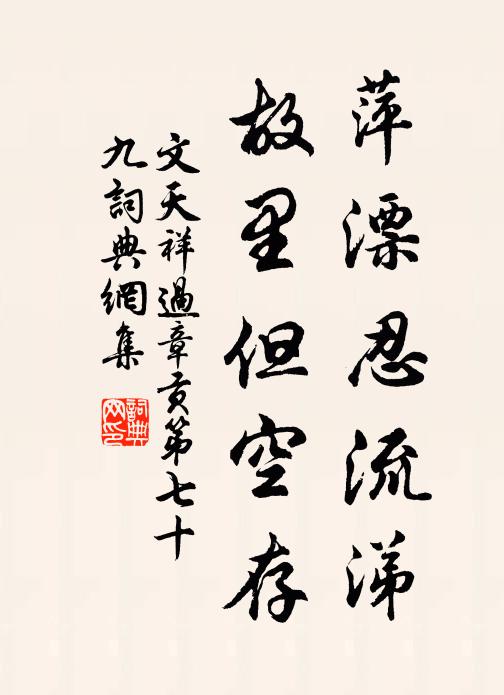 萍漂忍流涕
故里但空存
文天祥過章貢第七十
九詞典網集
詞典
网印